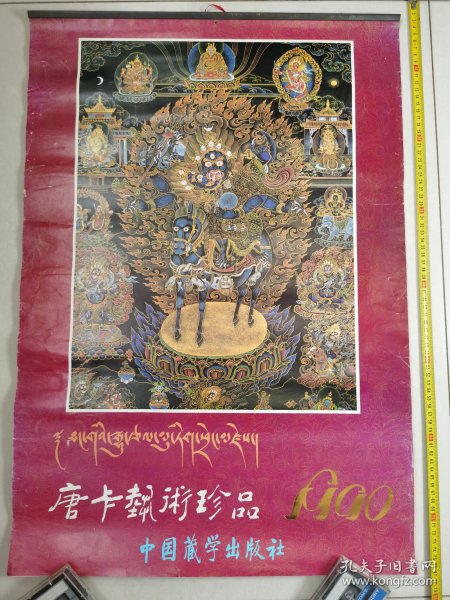 唐卡藝術珍品
1990
中国藏学出版社
孔夫子旧书网
www.kongfz.com